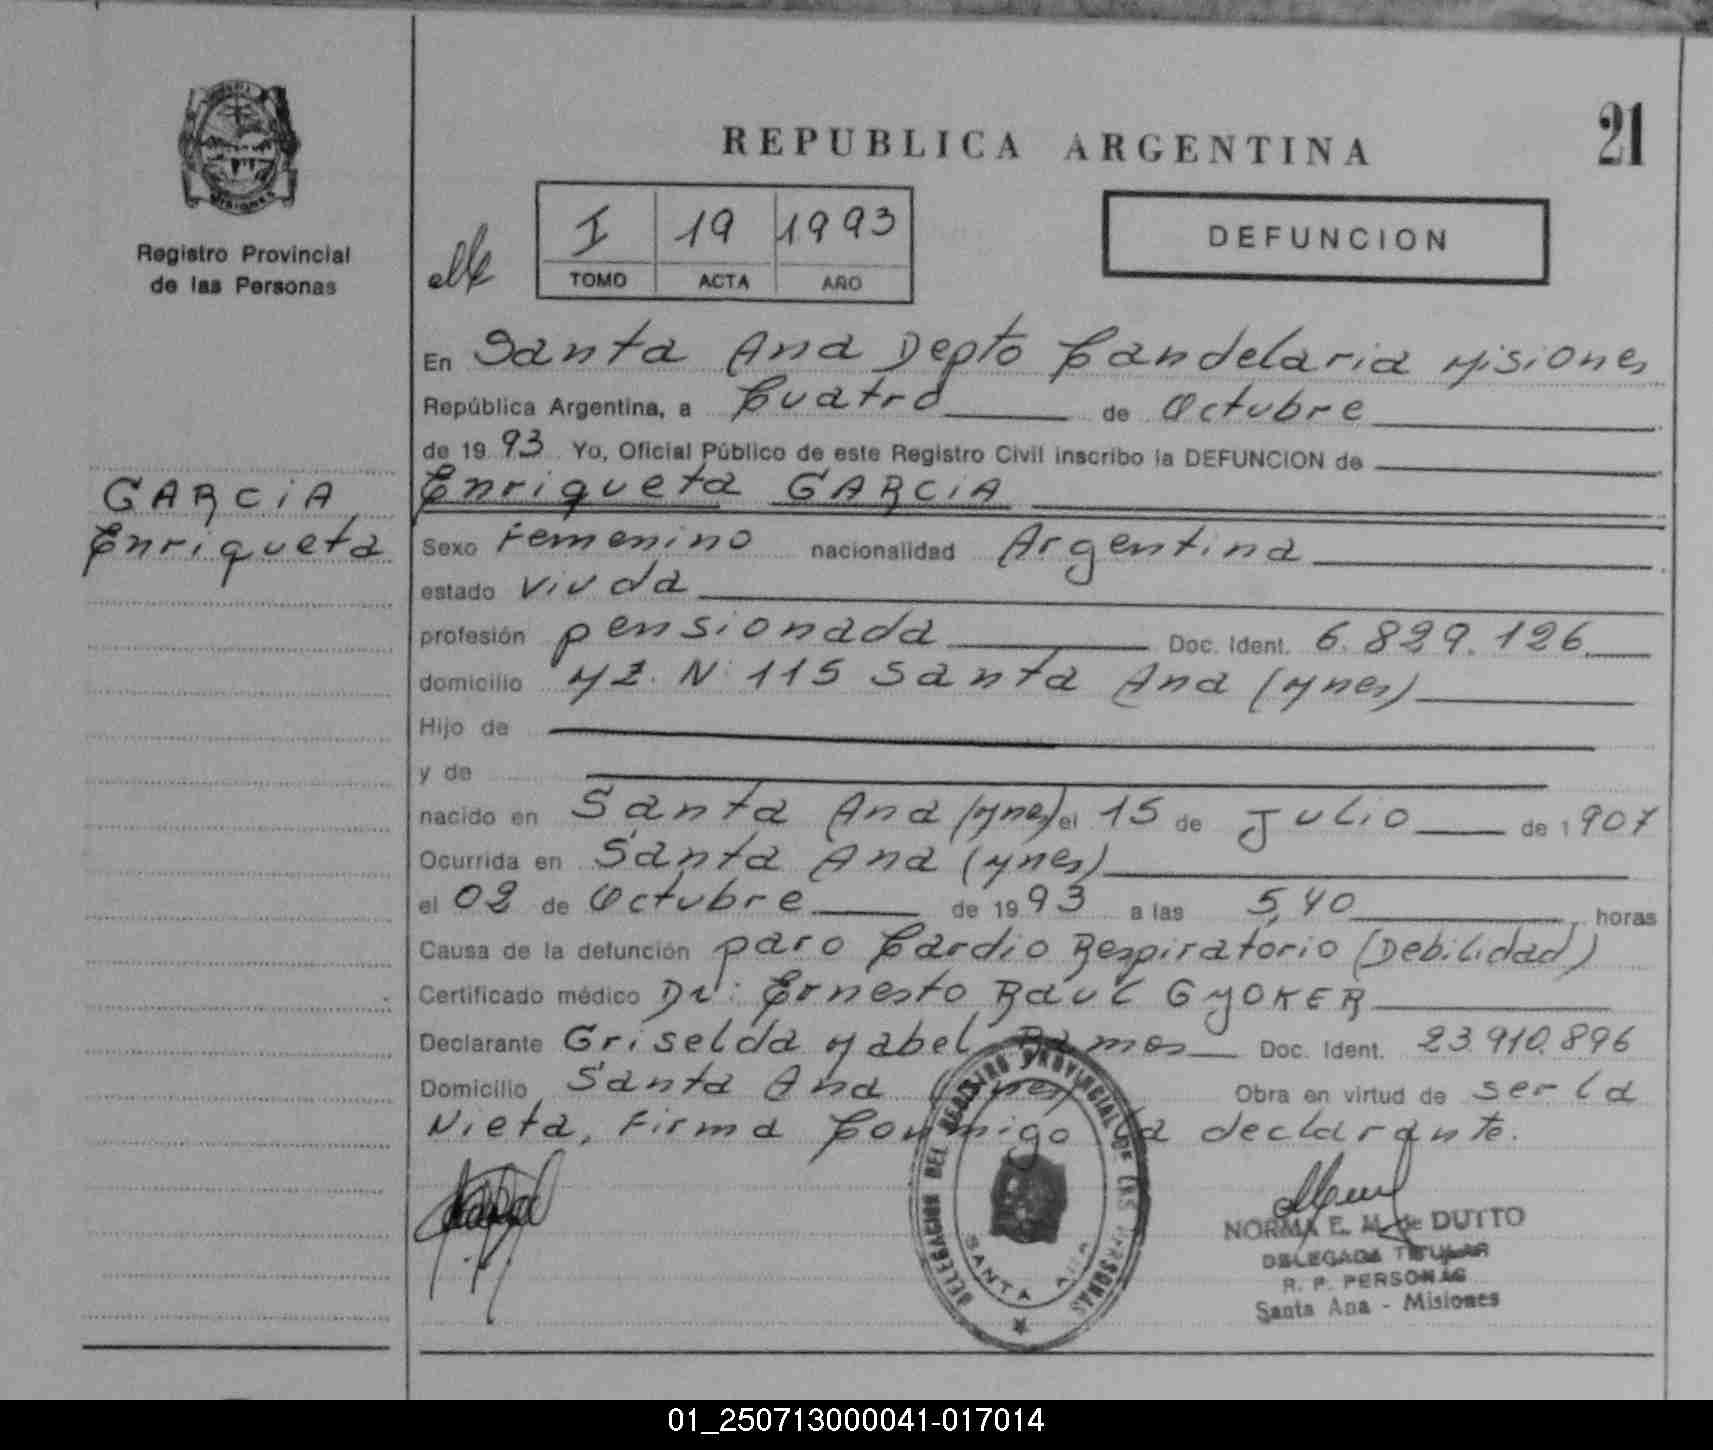 MISIONES
Registro Provincial
de las Personas
REPUBLICA ARGENTINA
21
I 19 1993
TOMO ACTA AÑO
DEFUNCION
En Santa Ana Depto Candelaria Misiones
República Argentina, a Cuatro de Octubre
de 1993 Yo, Oficial Público de este Registro Civil inscribo la DEFUNCION de
GARCIA
Enriqueta
Enriqueta GARCIA
Sexo Femenino nacionalidad Argentina
estado Viuda
profesión pensionada Doc. Ident. 6.829.126
domicilio Mz. N: 115 Santa Ana (Mnes)
Hijo de
y de
nacido en Santa Ana (Mnes) el 15 de Julio de 1907
Ocurrida en Santa Ana (Mnes)
el 02 de Octubre de 1993 a las 5,40 horas
Causa de la defunción paro Cardio Respiratorio (Debilidad)
Certificado médico Dr: Ernesto Raul GYOKER
Declarante Griselda Mabel Ramos Doc. Ident. 23.910.896
Domicilio Santa Ana (Mnes) Obra en virtud de ser la
Nieta, Firma Conmigo la declarante.
DELEGACION DEL REGISTRO PROVINCIAL DE LAS PERSONAS
SANTA ANA
NORMA E. M. de DUTTO
DELEGADA TITULAR
R. P. PERSONAS
Santa Ana - Misiones
01_250713000041-017014